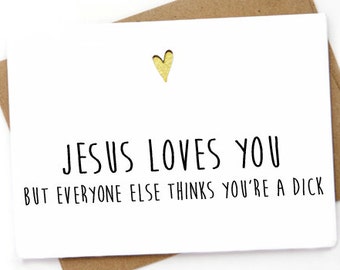 JESUS LOVES YOU
BUT EVERYONE ELSE THINKS YOU'RE A DICK